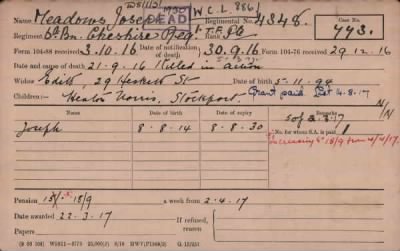 W.C.L. 886
Name Meadows, Joseph DEAD Regimental No. 4348. Case No. 773.
Regiment 6th Bn. Cheshire Reg. Rank Pte
Form 104-88 received 3.10.16 Date of notification of death 30.9.16 Form 104-76 received 29.12.16
Date and cause of death 21-9-16 Killed in action
Widow Edith, 29 Heskett St Date of birth 5-11-94
Children:— Heaton Norris, Stockport. Grant paid 4.8.17
Name Date of birth Date of expiry Remarks
Joseph 8-8-14 8-8-30
No. for whom S.A. is paid 1
Increasing to 18/9 from 4/4/17.
Pension 18/9 a week from 2-4-17
Date awarded 22-3-17 If refused, reason
Papers